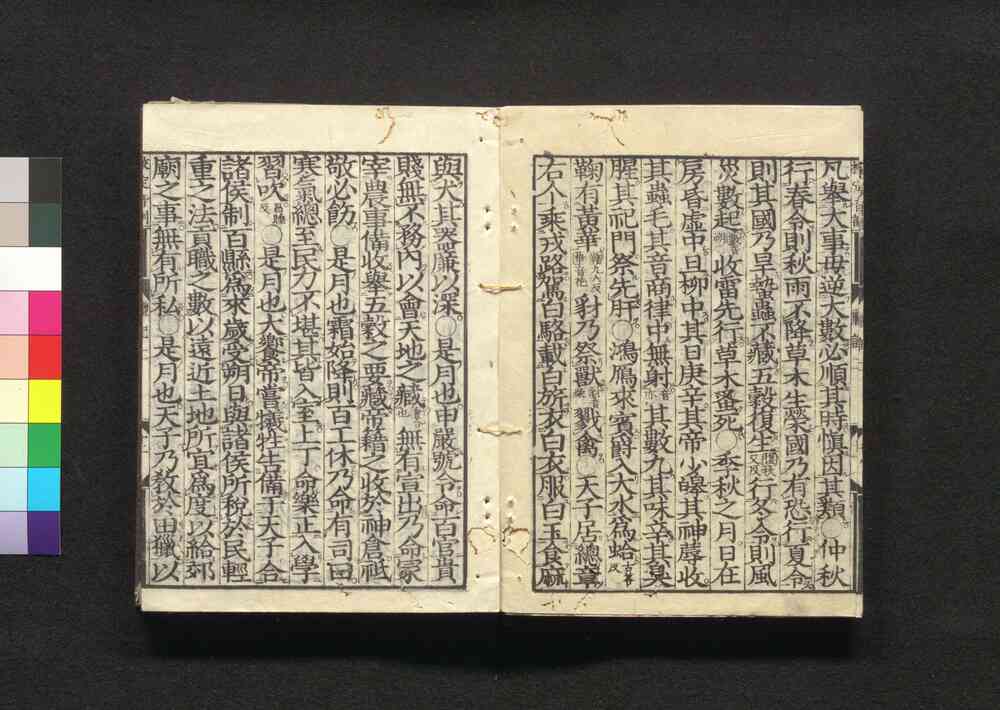 凡舉大事毋逆大數必順其時愼因其類○仲秋
行春令則秋雨不降草木生榮國乃有恐行夏令
則其國乃旱蟄蟲不藏五穀復生行冬令則風
災數起收雷先行草木蚤死○季秋之月日在
房昏虛中旦柳中其日庚辛其帝少皞其神蓐收
其蟲毛其音商律中無射其數九其味辛其臭
腥其祀門祭先肝○鴻鴈來賓爵入大水爲蛤
鞠有黃華豺乃祭獸戮禽○天子居總章
右个乘戎路駕白駱載白旂衣白衣服白玉食麻
與犬其器廉以深○是月也申嚴號令命百官貴
賤無不務內以會天地之藏無有宣出乃命冢
宰農事備收舉五穀之要藏帝藉之收於神倉祗
敬必飭○是月也霜始降則百工休乃命有司曰
寒氣總至民力不堪其皆入室上丁命樂正入學
習吹○是月也大饗帝嘗犧牲告備于天子合
諸侯制百縣爲來歲受朔日與諸侯所稅於民輕
重之法貢職之數以遠近土地所宜爲度以給郊
廟之事無有所私○是月也天子乃敎於田獵以